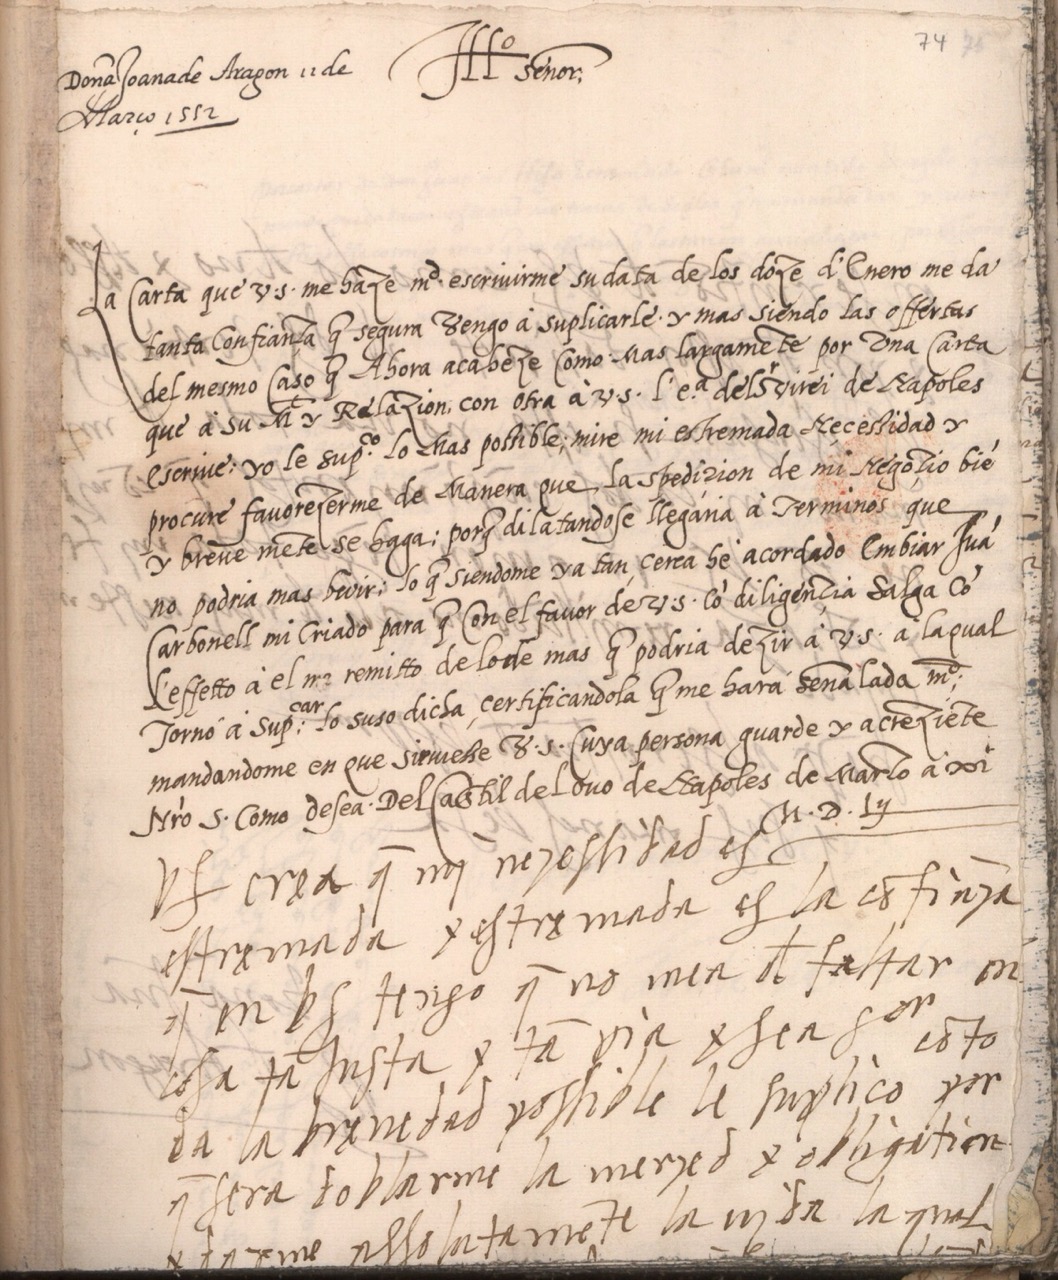 74
Illo Señor,
Doña Joana de Aragon 11 de
Março 1552
La Carta que v.s. me haze md. escrivirme su data de los doze d'Enero me da
tanta Confiança q̃ segura vengo à suplicarle. y mas siendo las offertas
del mesmo Caso q̃ Ahora acaheze Como Mas largamẽte por Una Carta
que à su Mt y Relazion, con otra à v.s. l'e.a del s.r virei de Napoles
escrive: yo le sup.co lo Mas possible, mire mi estremada Necessidad y
procure favorezerme de Manera que la spedizion de mi Negozio biẽ
y breve mẽte se haga; porq̃ dilatandose llegaria à Terminos que
no podria mas bevir; lo q̃ siendome ya tan cerca he acordado Embiar Juã
Carbonell mi Criado para q̃ Con el favor de v.s. cõ diligẽzia salga Cõ
l'effetto à el me remitto de lo de mas q̃ podria dezir à v.s. a laqual
Torno à sup.car lo suso dicho, certificandola q̃ me hará señalada md.
mandandome en que sirviesse V.S. Cuya persona guarde y acreziẽte
Nr̃o S. Como desea. Del Castil del ovo de Napoles de Marzo à xi
M.D.Lij
VS crea q̃ mj nezessidad es
estremada y estremada es la cõfiãza
q̃ en VS tengo q̃ no mea de faltar en
cosa tã Justa y tã pia y sea sor cõ to
da la brevedad possible le suplico por
q̃ sera doblarme la merzed y obligation
y darme assolutamẽte la vida la qual